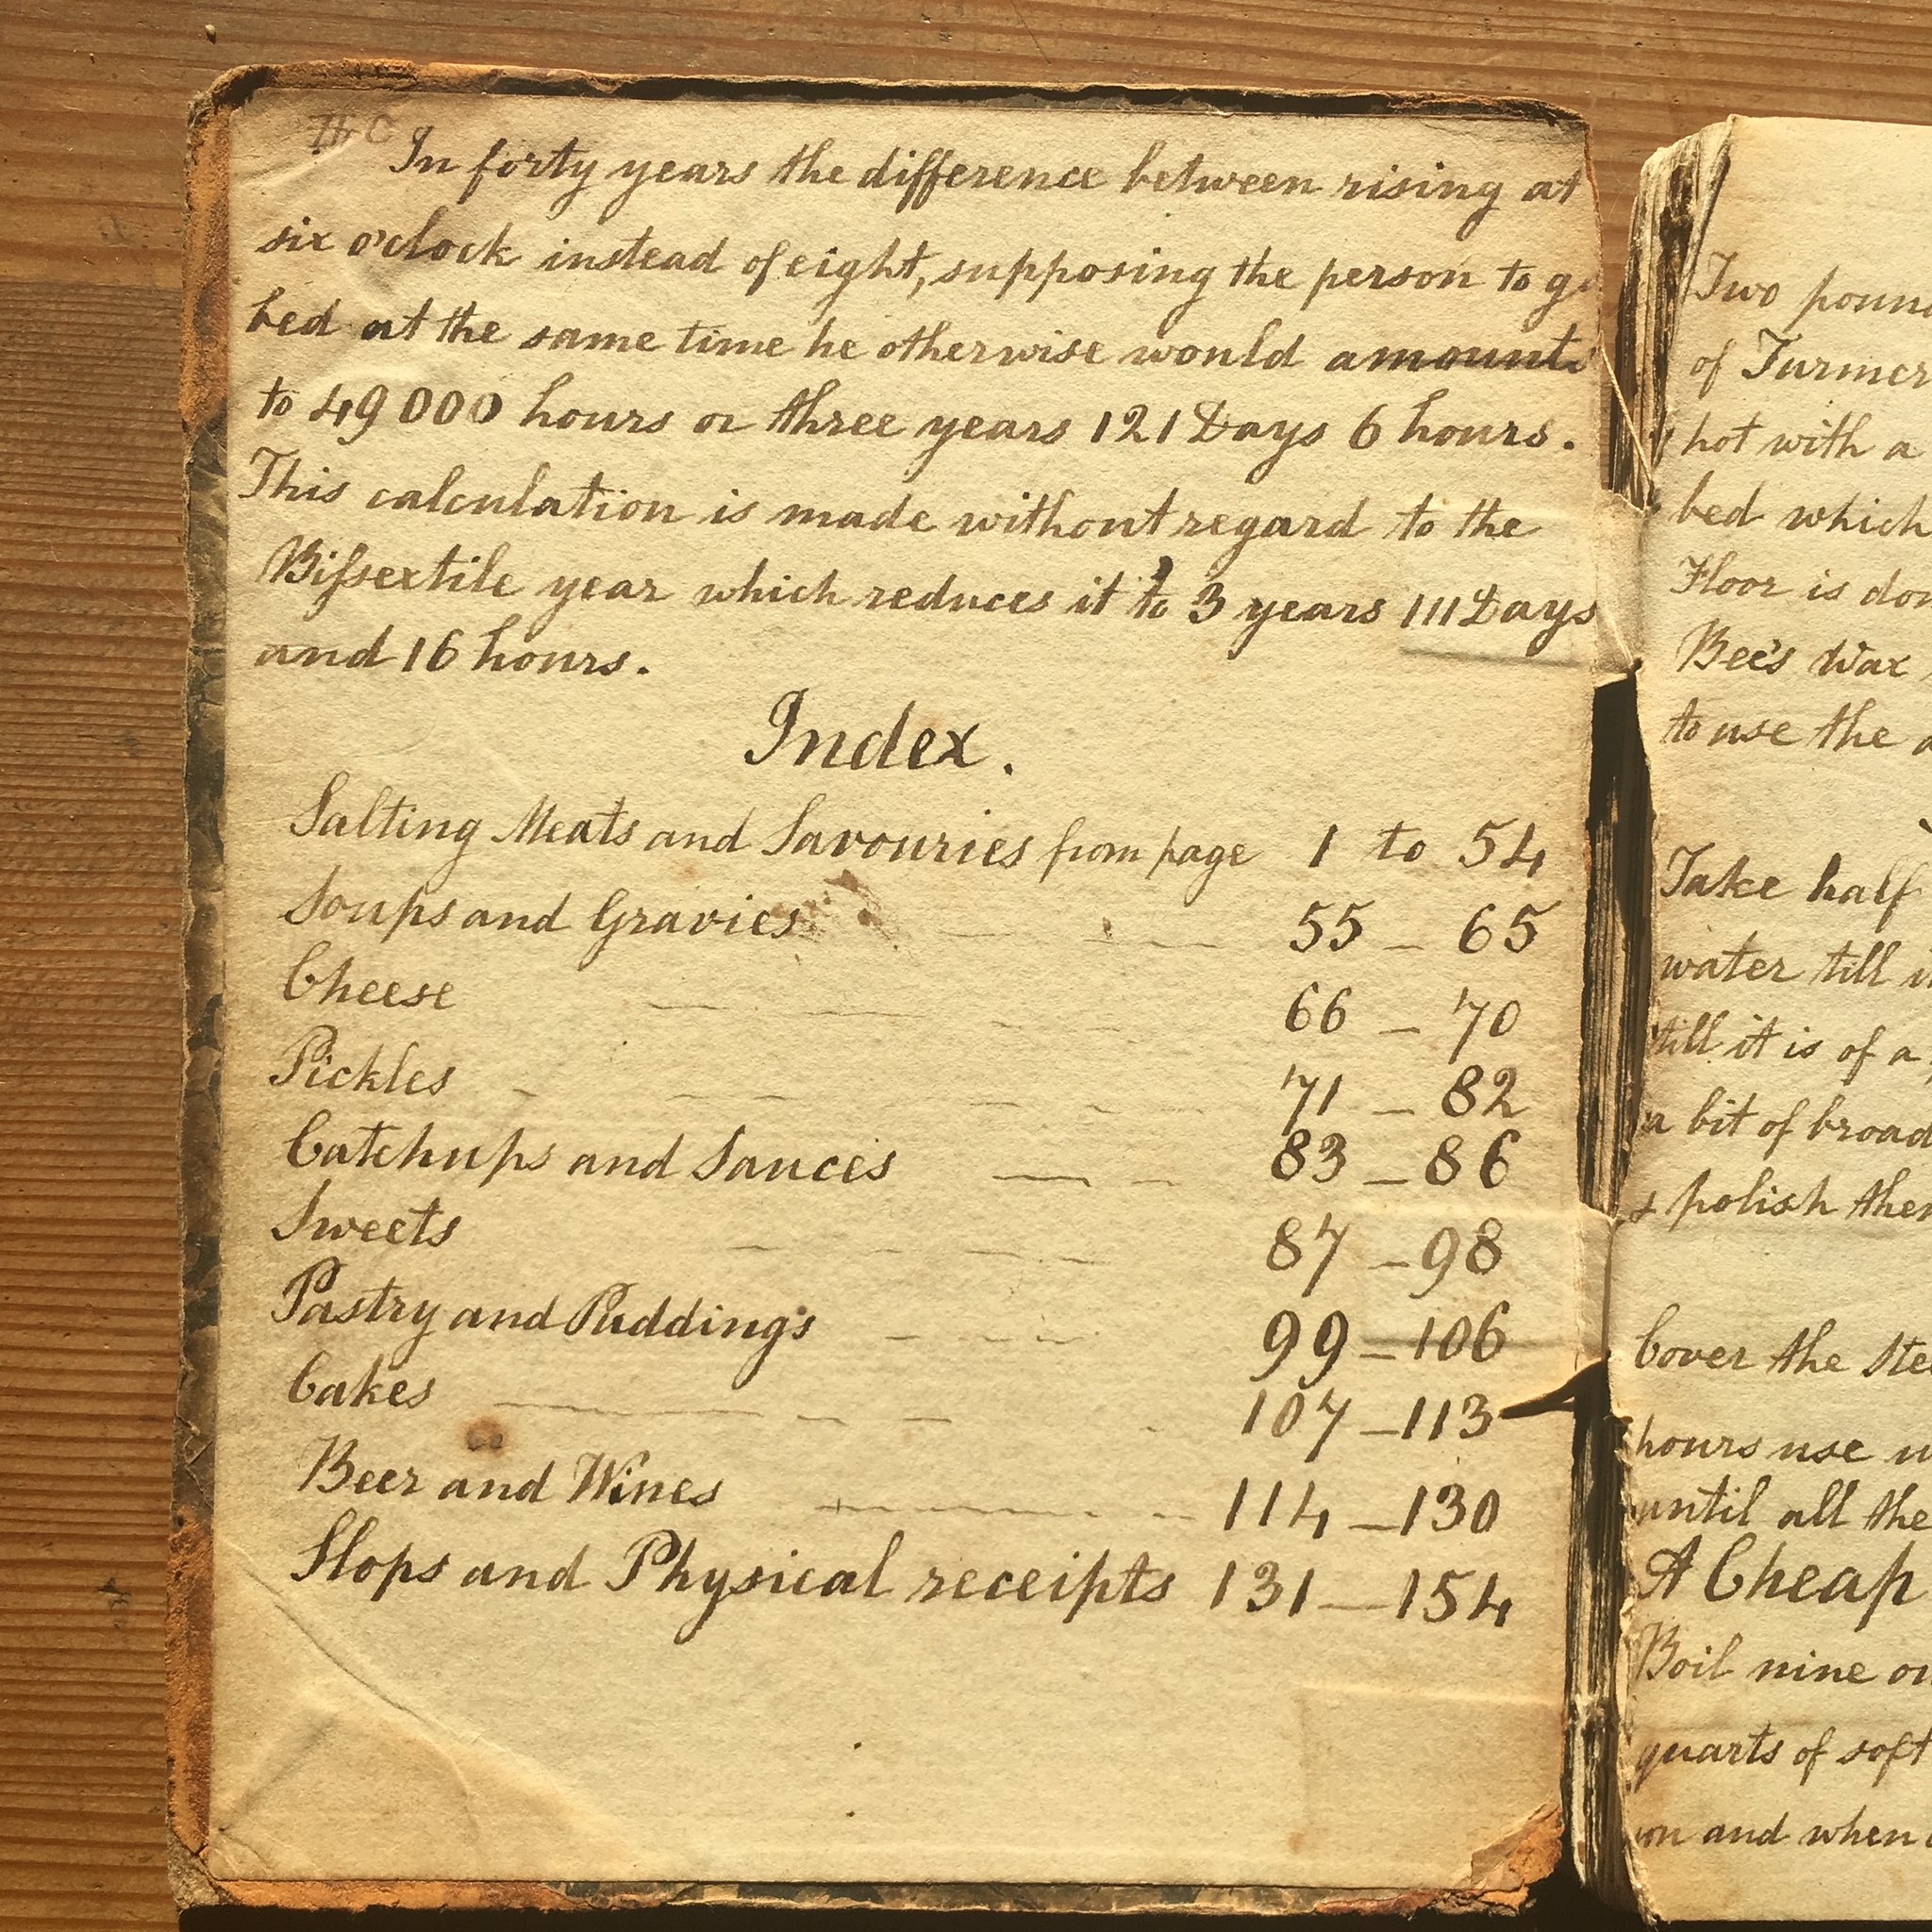 In forty years the difference between rising at
six o'clock instead of eight, supposing the person to go
bed at the same time he otherwise would amounts
to 49000 hours or three years 121 Days 6 hours.
This calculation is made without regard to the
Bifsextile year which reduces it to 3 years 111 Days
and 16 hours.
Index.
Salting Meats and Savouries from page 1 to 54
Soups and Gravies 55 – 65
Cheese 66 – 70
Pickles 71 – 82
Catchups and Sauces 83 – 86
Sweets 87 – 98
Pastry and Puddings 99 – 106
Cakes 107 – 113
Beer and Wines 114 – 130
Slops and Physical receipts 131 – 154
Two poun
of Turmer
hot with a
bed which
Floor is don
Bee's Wax
to use the
Take half
water till
till it is of a
a bit of broad
& polish them
Cover the Ste
hours use
until all the
A Cheap
Boil nine ou
quarts of soft
and when